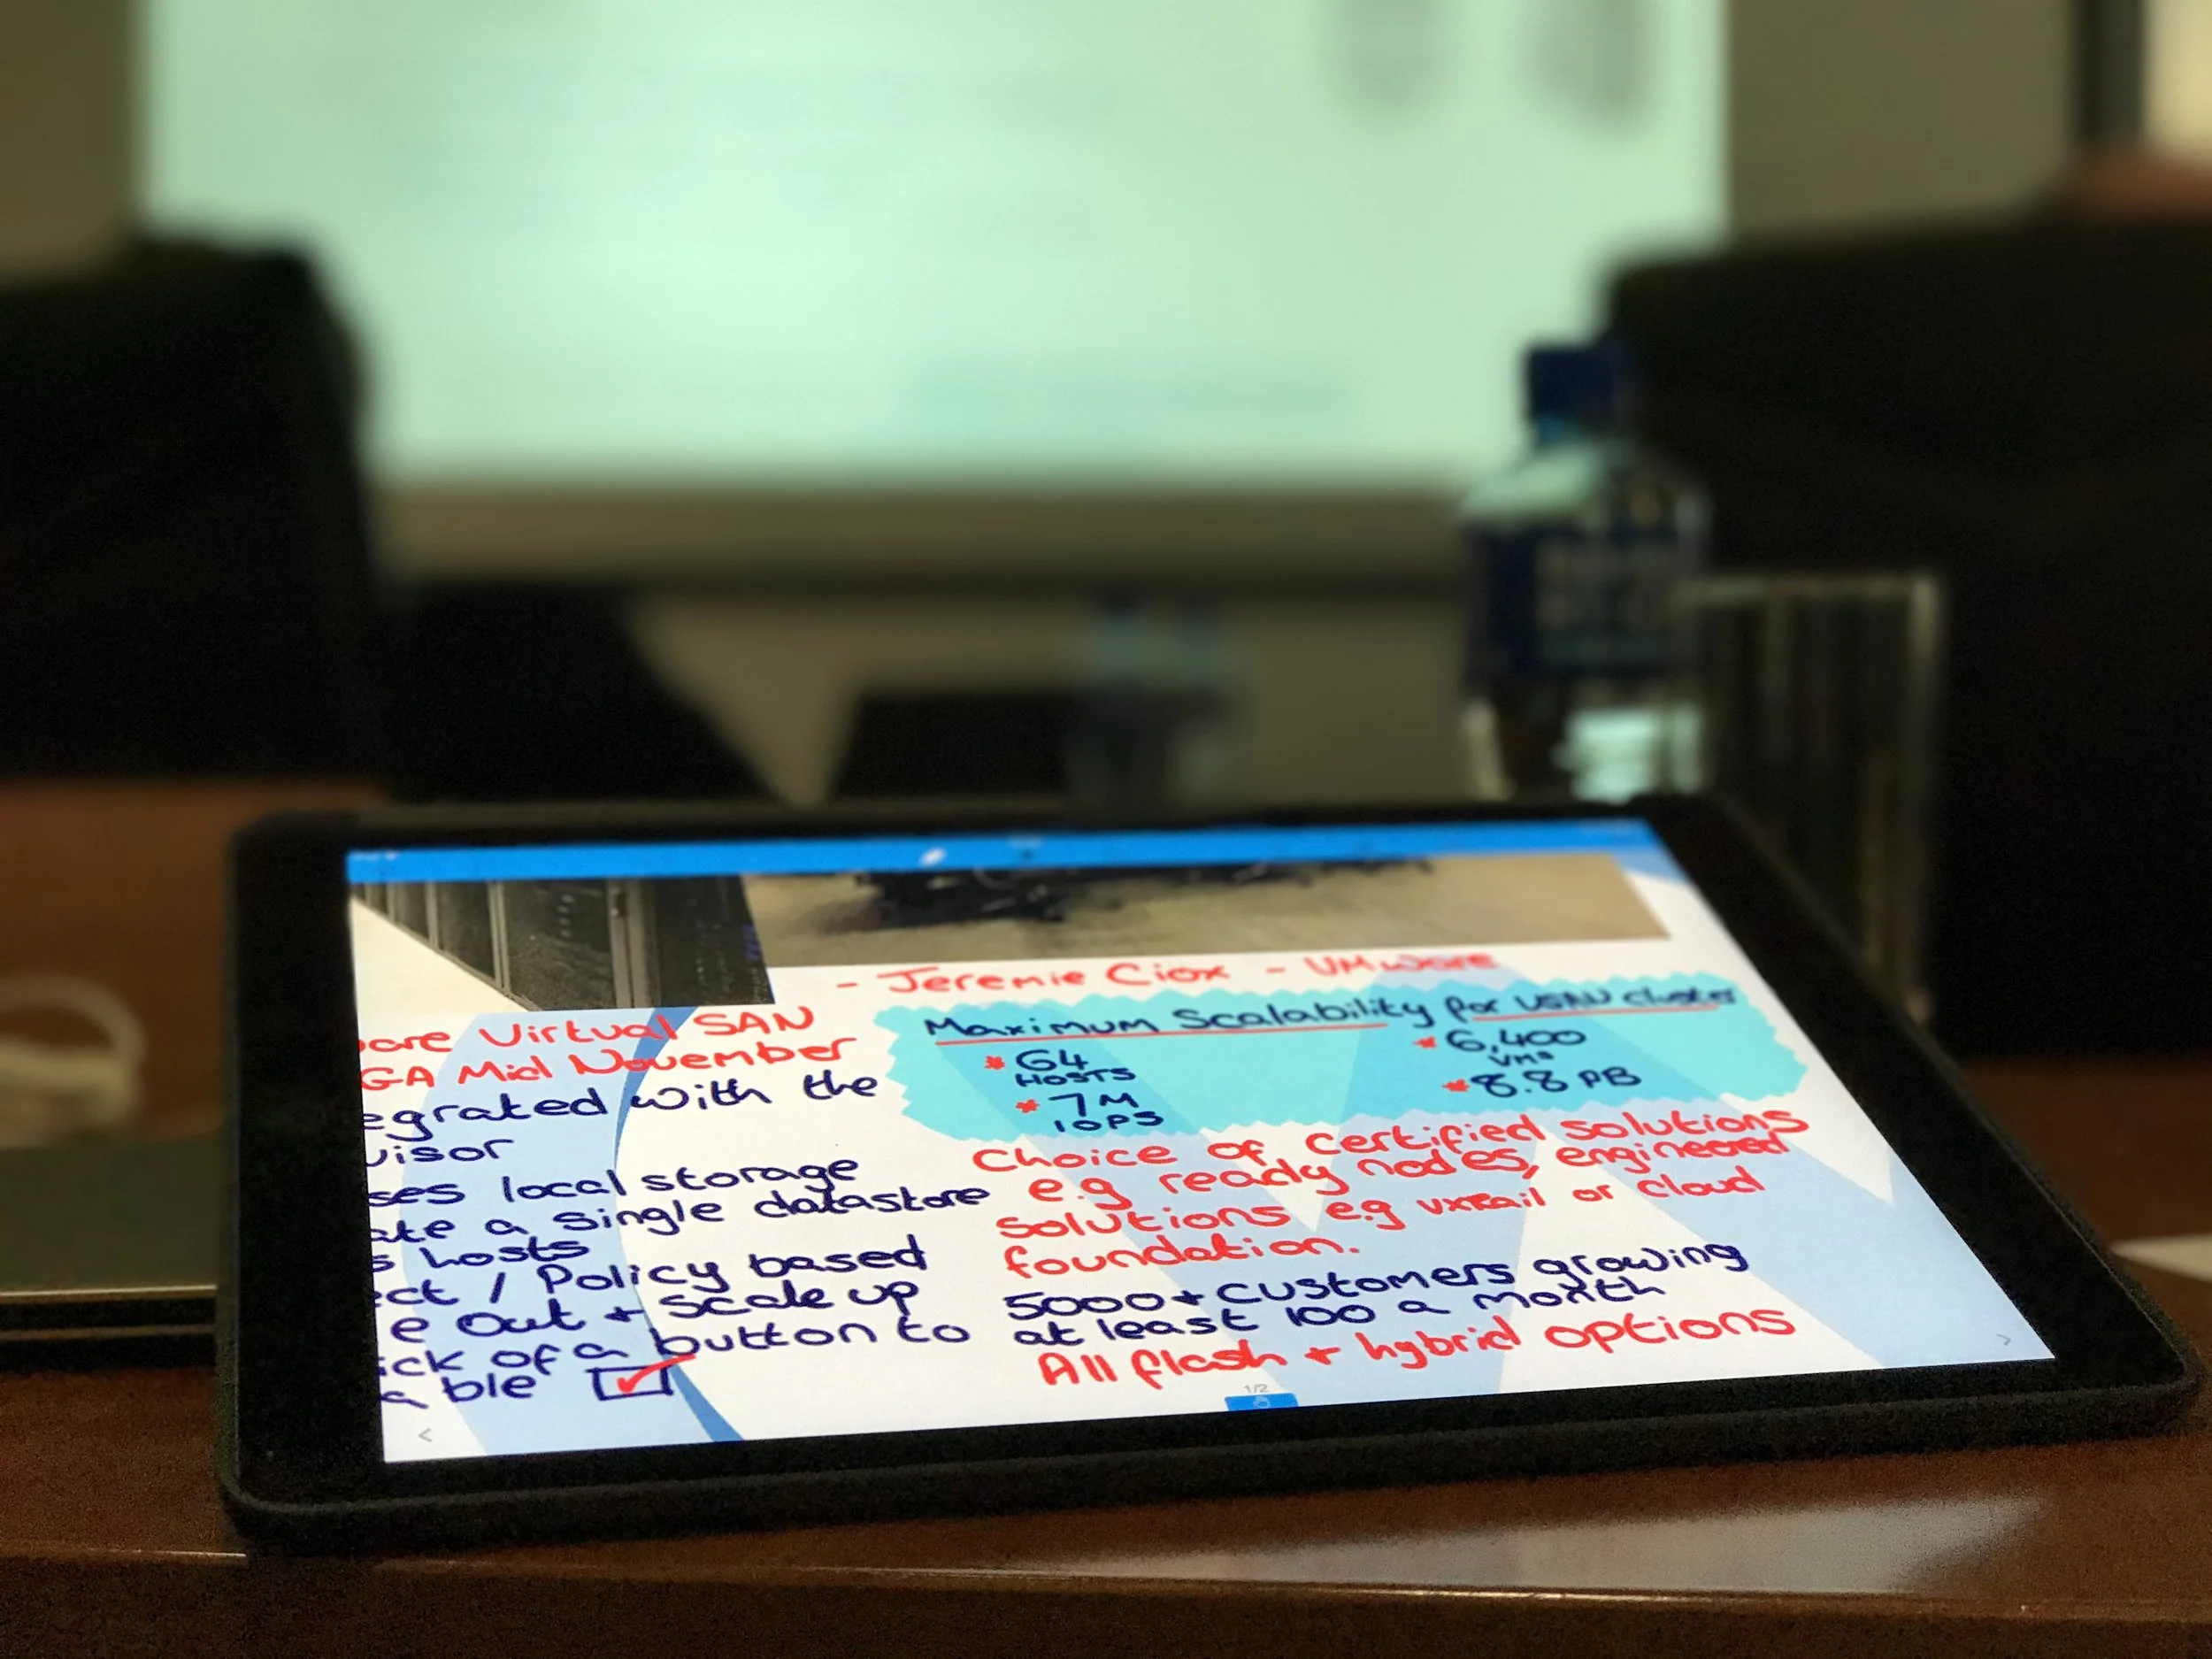 - Jeremie Ciox - VMware
are Virtual SAN
GA Mid November
egrated with the
visor
ses local storage
ate a single datastore
s hosts
ect / Policy based
e Out + Scale up
ick of a button to
able
Maximum Scalability for VSAN cluster
* 64
HOSTS
* 7M
IOPS
* 6,400
VMs
* 8.8 PB
Choice of certified solutions
e.g ready nodes, engineered
solutions e.g vxRail or cloud
foundation.
5000+ customers growing
at least 100 a month
All flash + hybrid options
1/2